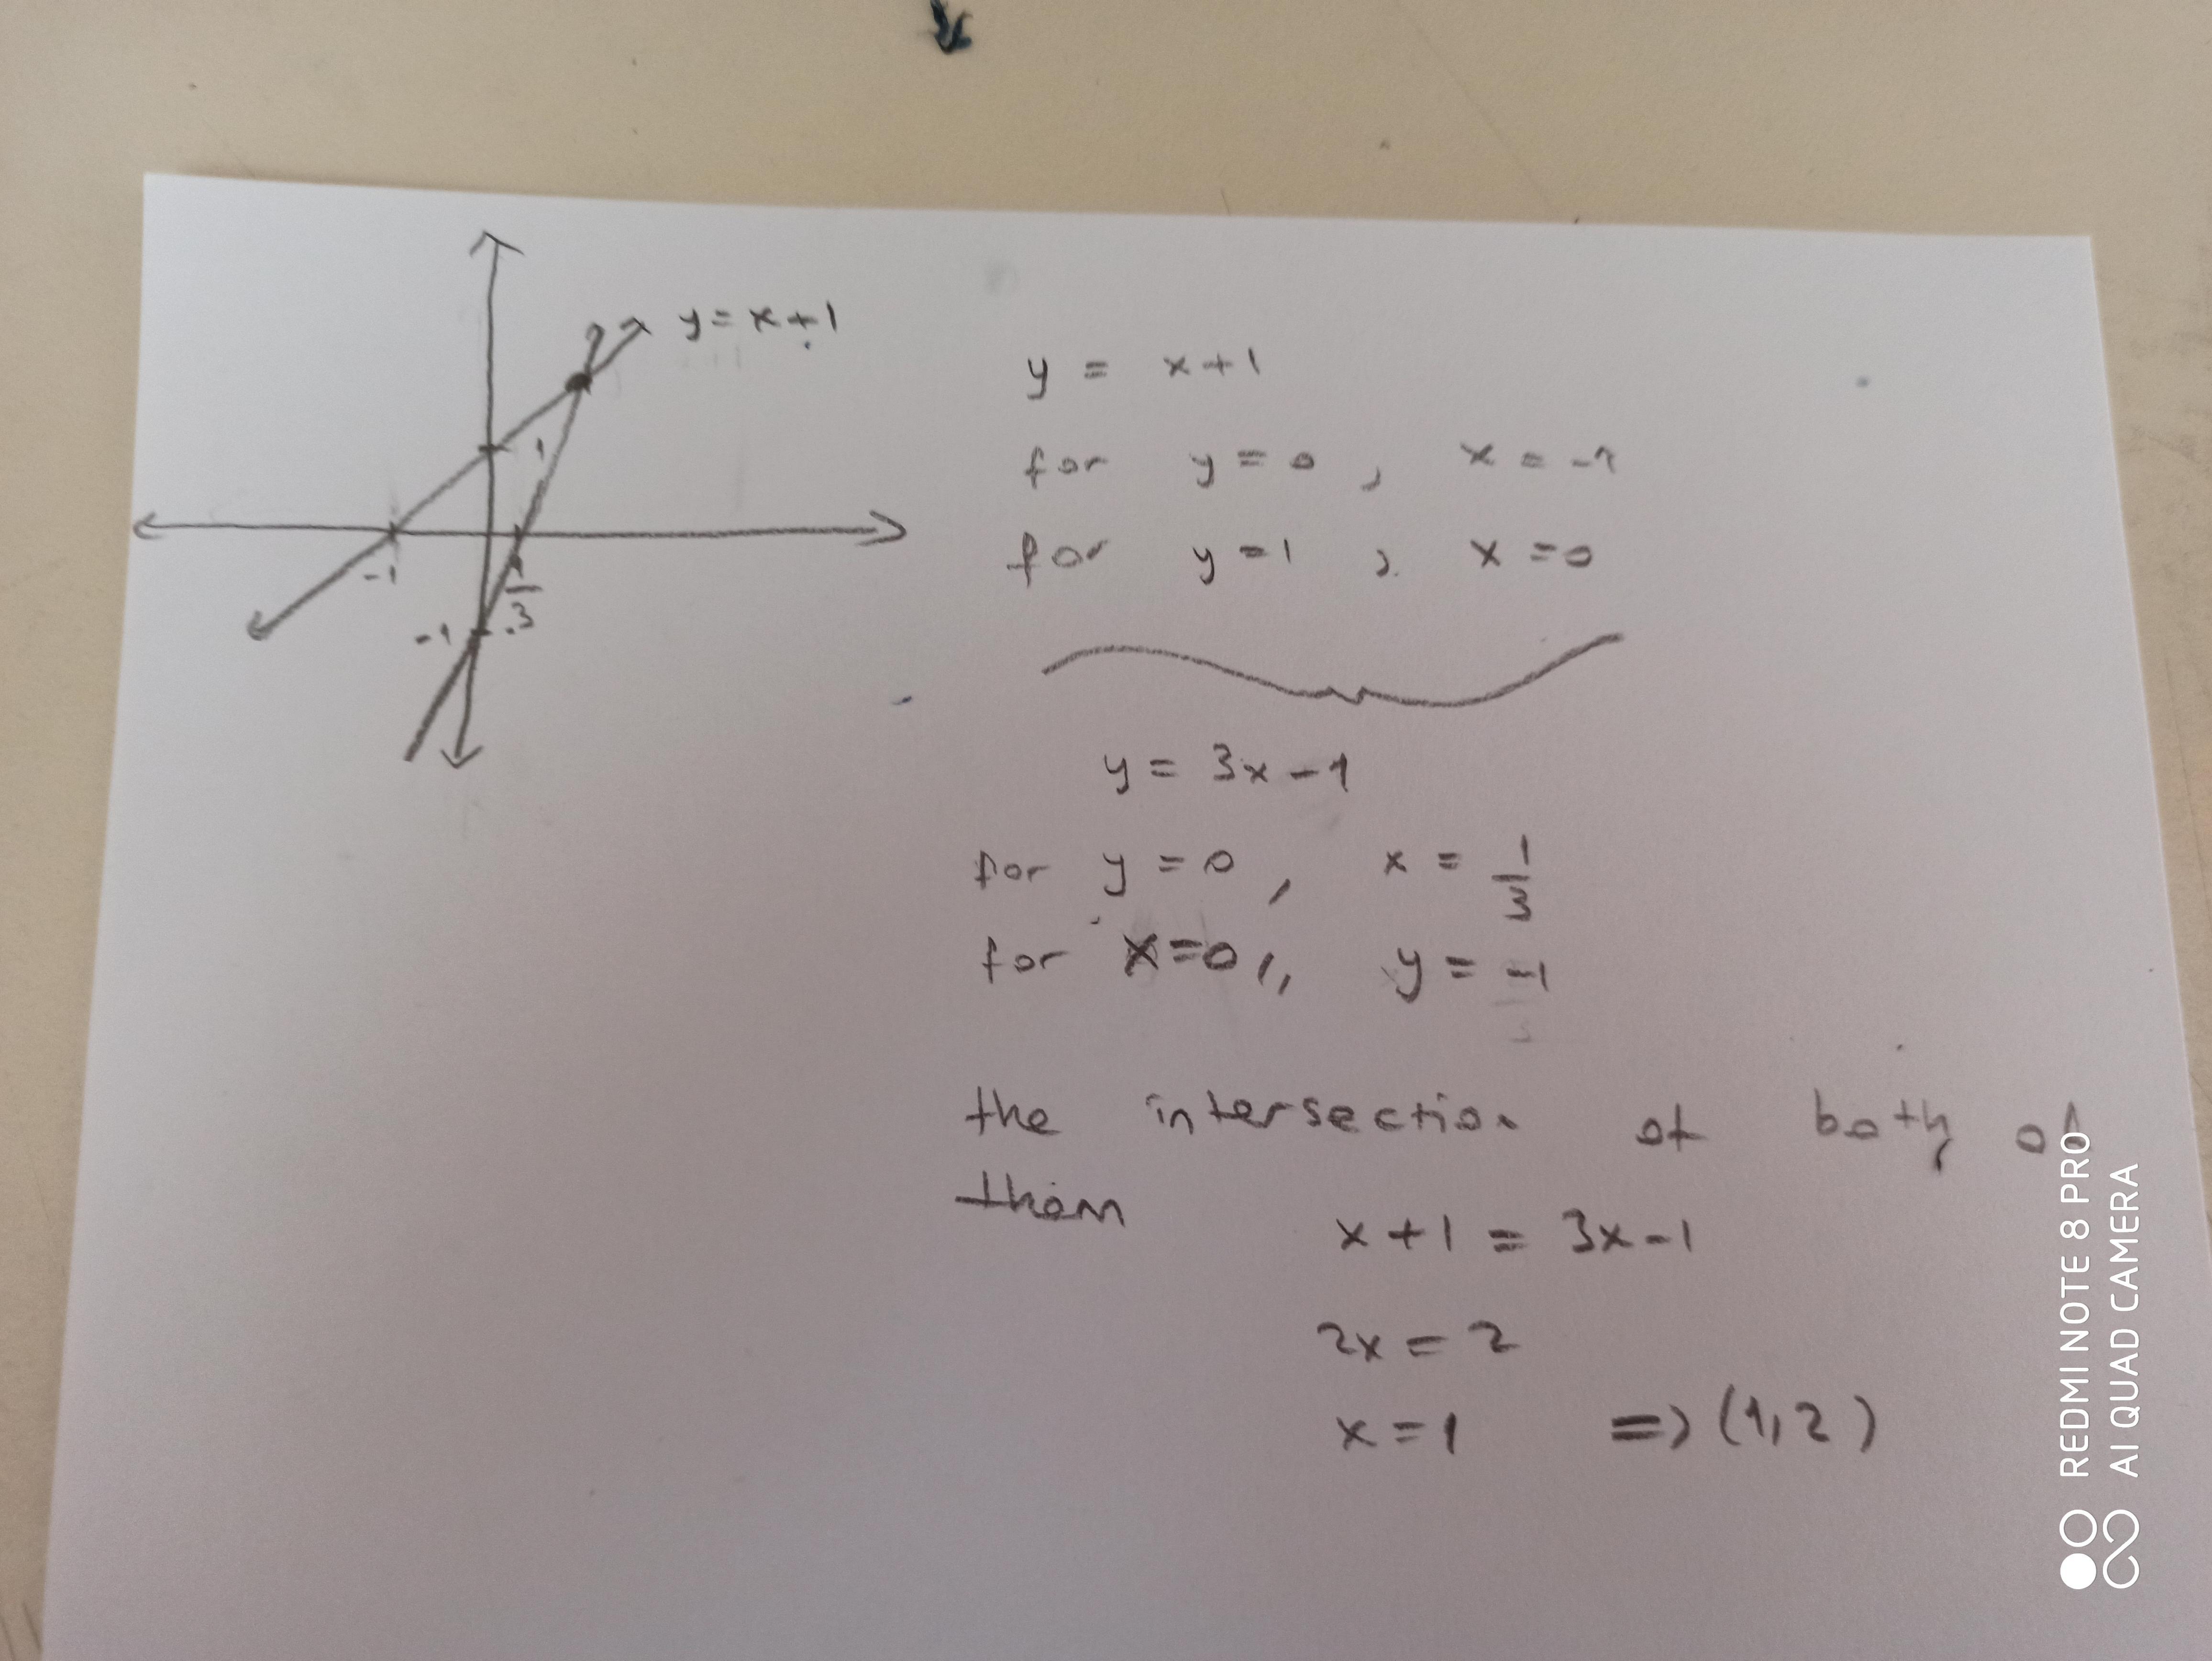 y = x + 1
1
-1
1
3
-1
y = x + 1
for y = 0 , x = -1
for y = 1 , x = 0
y = 3x - 1
for y = 0 , x = 1/3
for x = 0 ,, y = -1
the intersection of both of
them
x + 1 = 3x - 1
2x = 2
x = 1 => (1,2)
REDMI NOTE 8 PRO
AI QUAD CAMERA